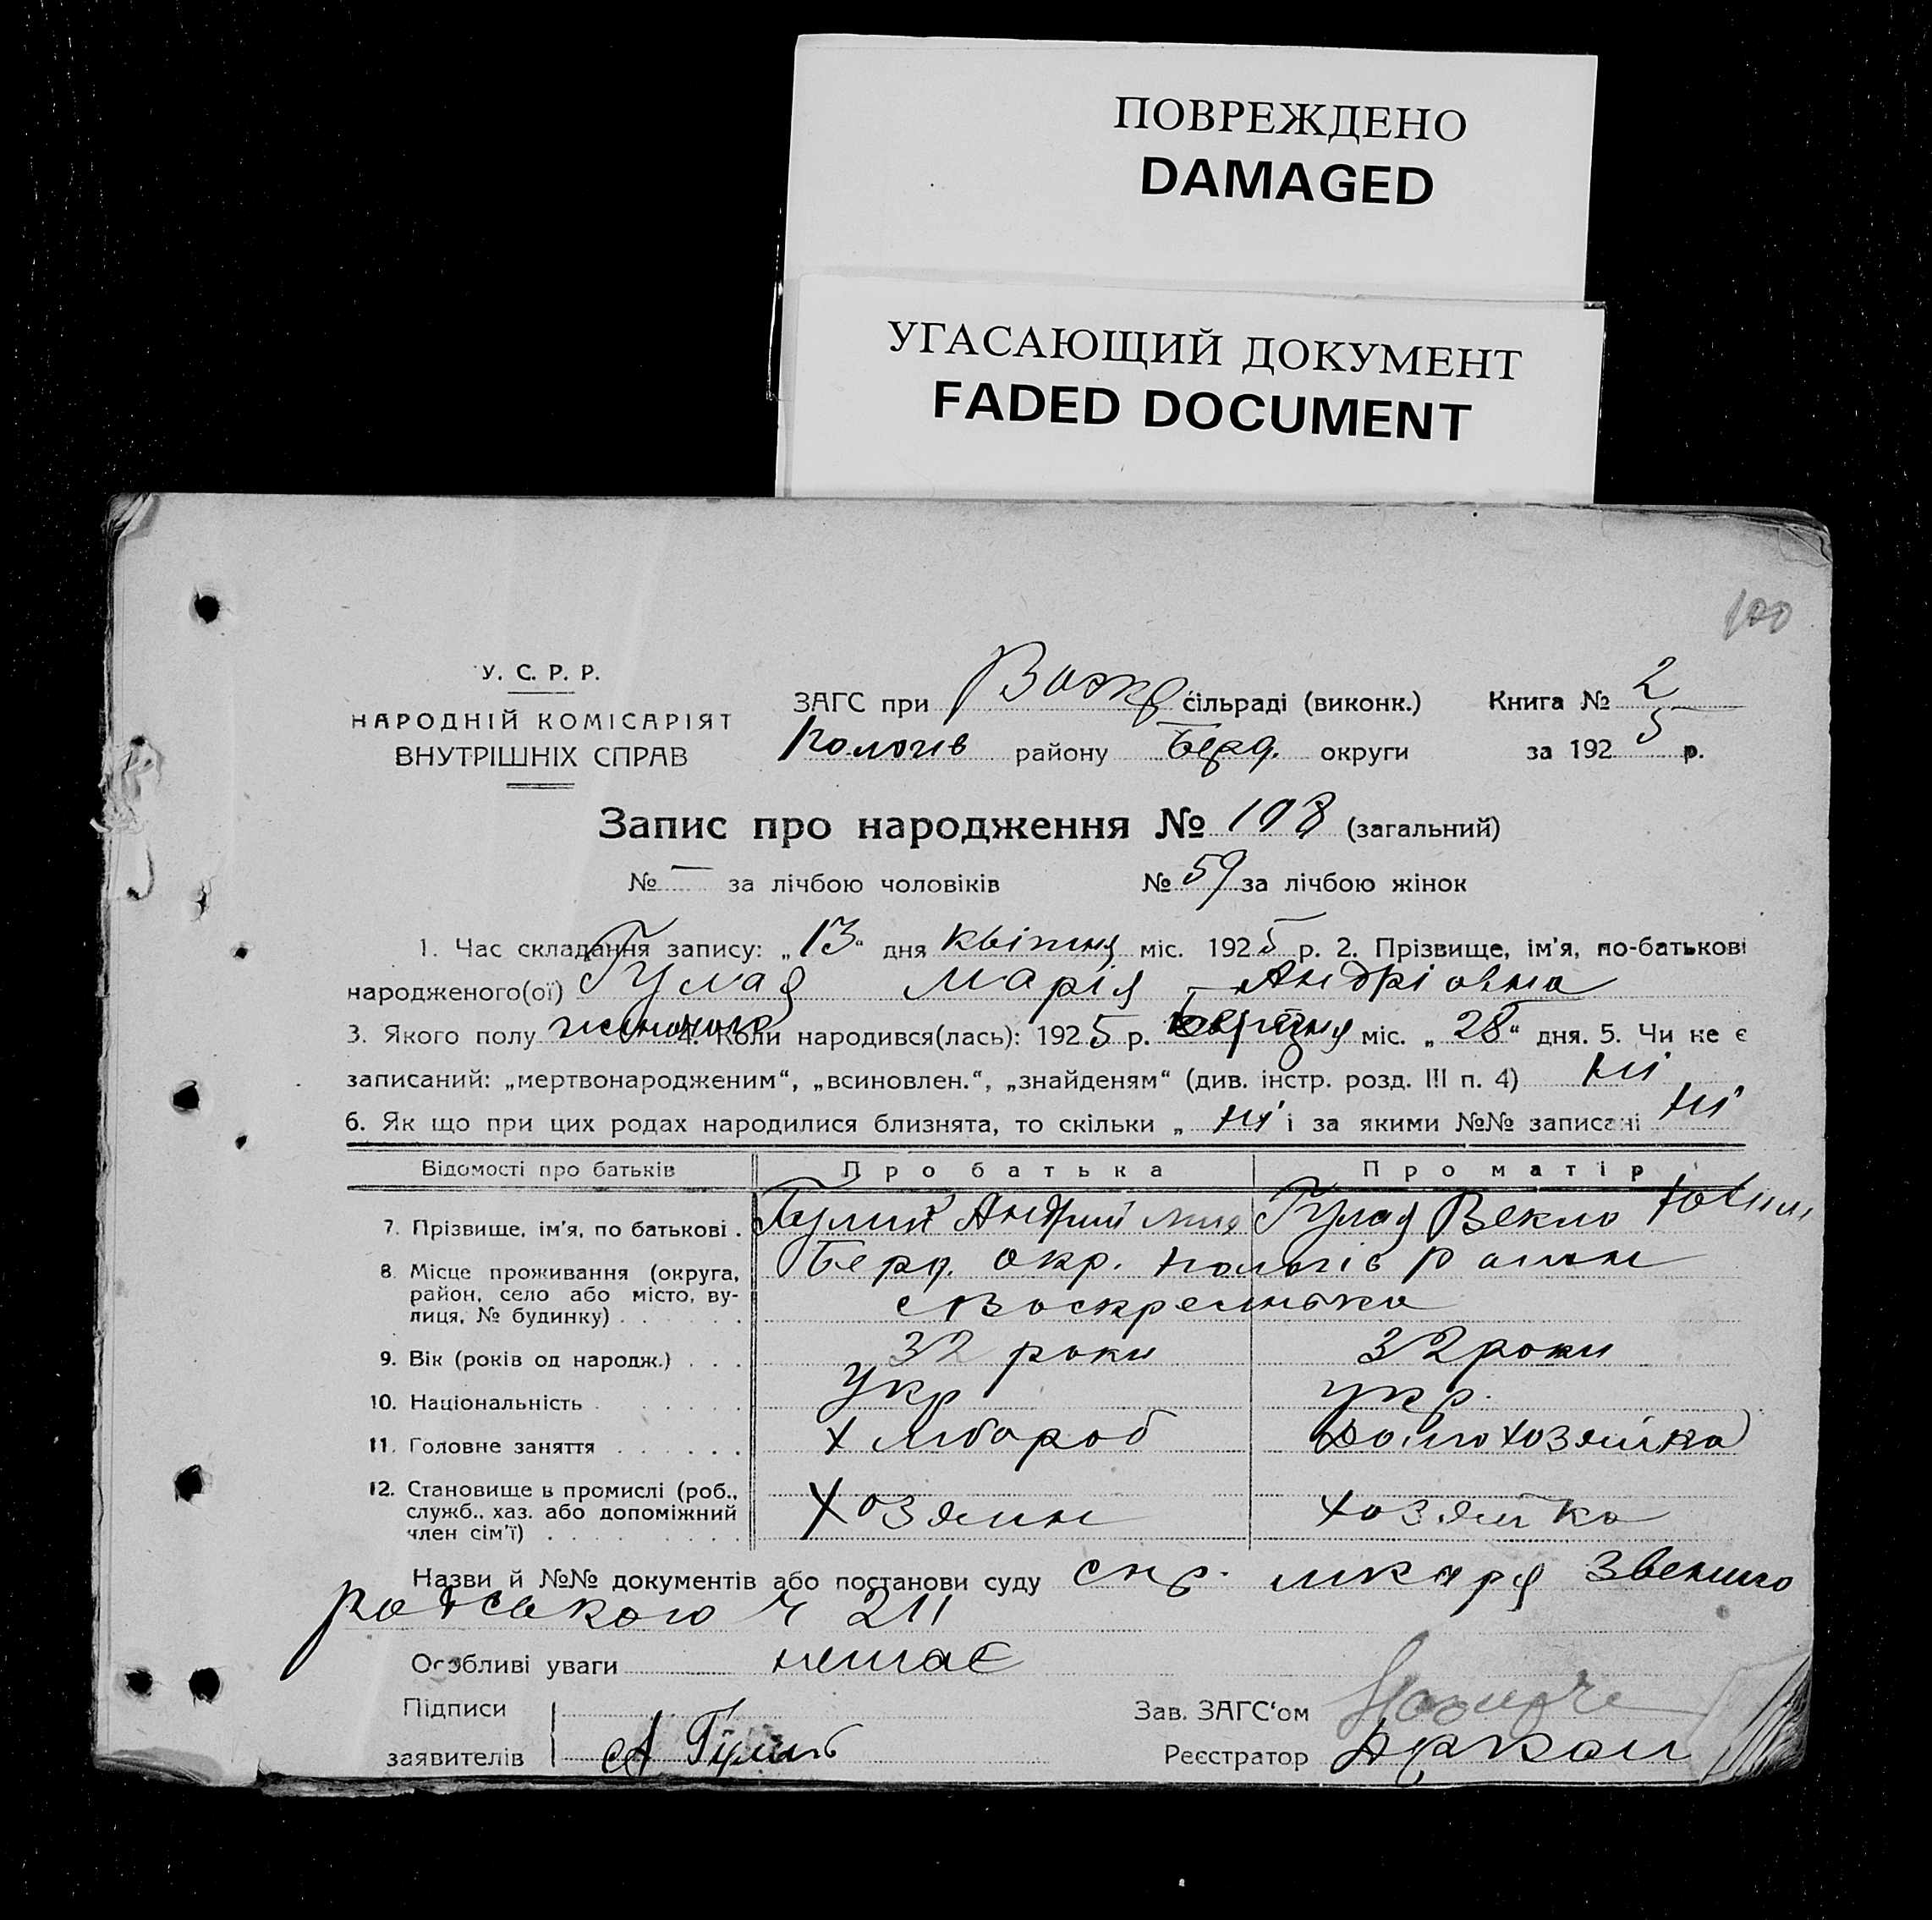 ПОВРЕЖДЕНО
DAMAGED
УГАСАЮЩИЙ ДОКУМЕНТ
FADED DOCUMENT
100
У. С. Р. Р.
НАРОДНІЙ КОМІСАРІЯТ
ВНУТРІШНІХ СПРАВ
ЗАГС при Воскр сільраді (виконк.) Книга № 2
Пологів району Берд. округи за 1925 р.
Запис про народження № 108 (загальний)
№ — за лічбою чоловіків № 59 за лічбою жінок
1. Час складання запису: „13“ дня квітня міс. 1925 р. 2. Прізвище, ім'я, по-батькові
народженого(ої) Гулая Марія Андріовна
3. Якого полу 4. Коли народився(лась): 1925 р. березня міс. „28“ дня. 5. Чи не є
записаний: „мертвонародженим“, „всиновлен.“, „знайденям“ (див. інстр. розд. III п. 4) ні
6. Як що при цих родах народилися близнята, то скільки „ ні і за якими №№ записані ні
Відомості про батьків Про батька Про матір
7. Прізвище, ім'я, по батькові . Андрий Гулая Векло
8. Місце проживання (округа, район, село або місто, вулиця, № будинку) . Берд. окр. Пологів район
с Воскресинька
9. Вік (років од народж.) . . . 32 роки 32 роки
10. Національність . укр укр.
11. Головне заняття . хлібороб домохозяйка
12. Становище в промислі (роб., служб., хаз. або допоміжний член сім'ї) . хозяин хозяйка
Назви й №№ документів або постанови суду спр. лікаря Звениго
родського Ч 211
Особливі уваги немає
Підписи Зав. ЗАГС'ом
заявителів А Гулий Реєстратор